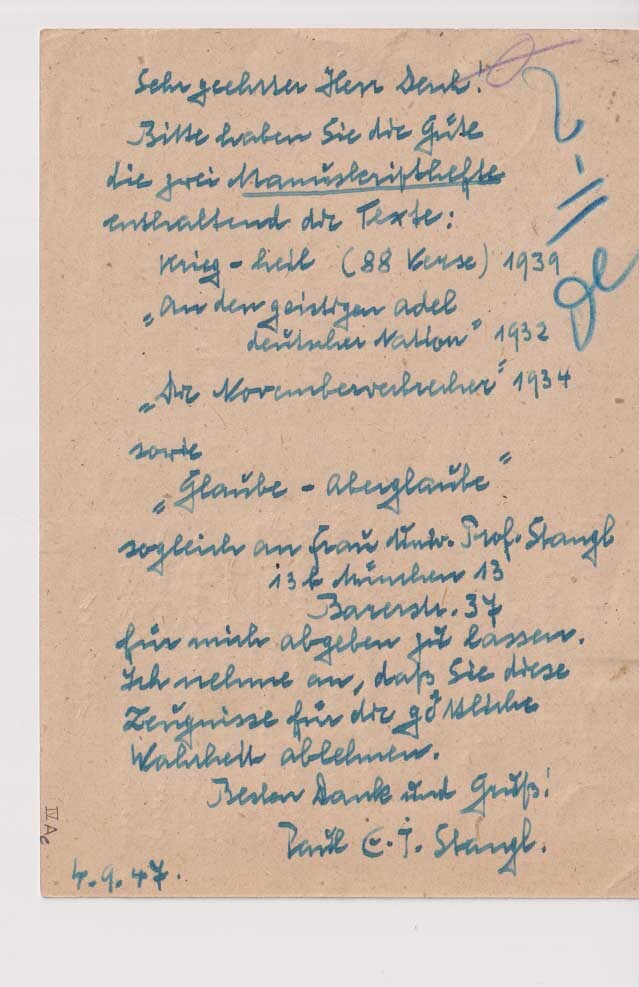 Sehr geehrter Herr Denk!
Bitte haben Sie die Güte
die zwei Manuskripthefte
enthaltend die Texte:
Krieg - heil (88 Verse) 1939
„An den geistigen Adel
deutscher Nation" 1932
„Die Novemberverbrecher" 1934
sowie
„Glaube - Aberglaube"
sogleich an Frau Univ. Prof. Stangl
13b München 13
Barerstr. 37
für mich abgeben zu lassen.
Ich nehme an, daß Sie diese
Zeugnisse für die göttliche
Wahrheit ablehnen.
Besten Dank und Gruß!
Paul C. J. Stangl.
4.9.47.
IV Ae